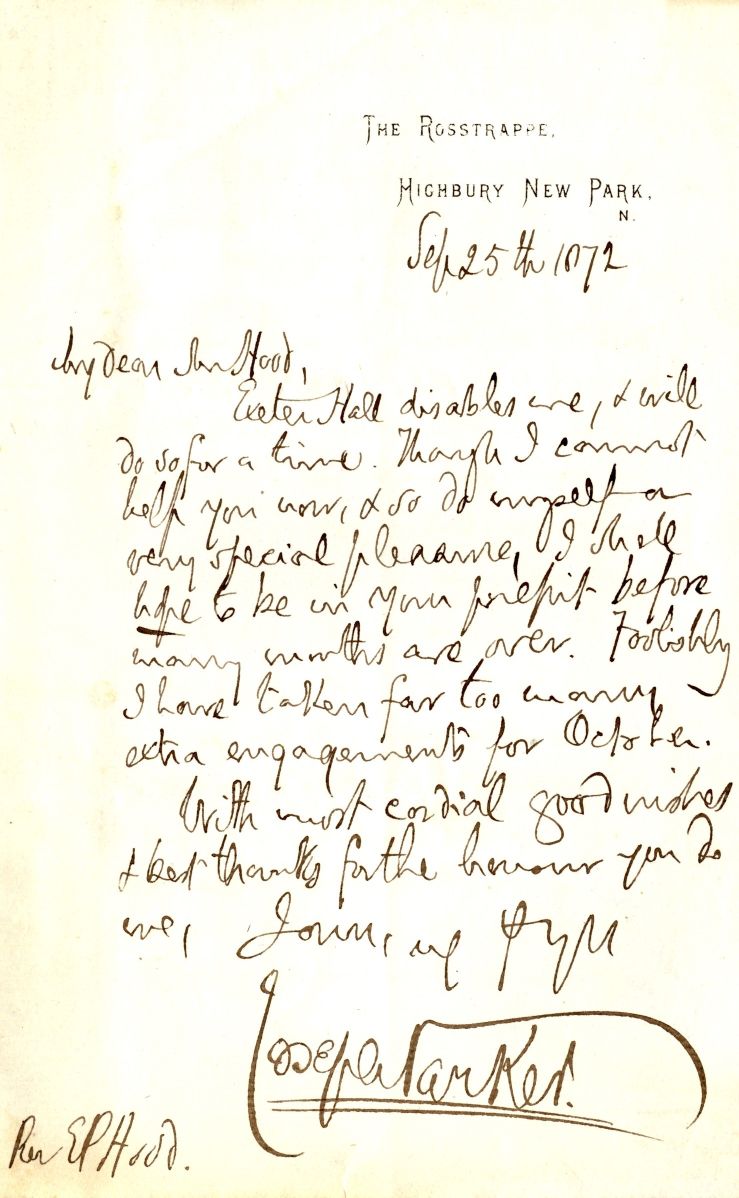 THE ROSSTRAPPE,
HIGHBURY NEW PARK,
N.
Sep 25th 1872
My dear Mr Hood,
Exeter Hall disables me, & will
do so for a time. Though I cannot
help you now, & so do myself a
very special pleasure, I shall
hope to be in your pulpit before
many months are over. Foolishly
I have taken far too many
extra engagements for October.
With most cordial good wishes
& best thanks for the honour you do
me, Yours,
Joseph Parker.
Rev EP Hood.